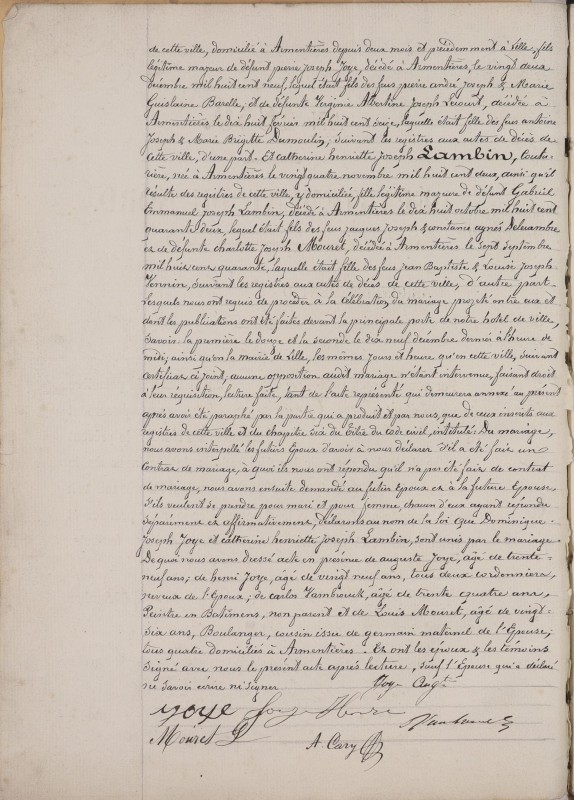 de cette ville, domicilié à Armentières depuis deux mois et précédemment à Lille, fils
légitime majeur de défunt pierre Joseph Joye, décédé à Armentières, le vingt deux
Décembre mil huit cent neuf, lequel était fils des feus pierre andré Joseph & Marie
Guislaine Barelle; et de défunte Virginie Albertine Joseph Lecourt, décédée à
Armentières le dix huit février mil huit cent treize, laquelle était fille des feus antoine
Joseph & Marie Brigitte Dumoulin; suivant les registres aux actes de décès de
cette ville, d'une part. Et catherine henriette Joseph Lambin, Coutu-
rière, née à Armentières le vingt quatre novembre mil huit cent deux, ainsi qu'il
résulte des registres de cette ville, y domiciliée, fille légitime majeure de défunt Gabriel
Emmanuel Joseph Lambin, décédé à Armentières le dix huit octobre mil huit cent
quarante deux, lequel était fils des feus jacques Joseph & constance agnès Delecambre
et de défunte charlotte Joseph Mouret, décédée à Armentières le sept septembre
mil huit cent quarante, laquelle était fille des feus Jean Baptiste & Louise Joseph
suivant les registres aux actes de décès de cette ville, d'autre part.
Lesquels nous ont requis de procéder à la Célébration du mariage projeté entre eux et
dont les publications ont été faites devant la principale porte de notre hôtel de ville,
Savoir: la première le douze et la seconde le dix neuf décembre dernier à l'heure de
midi; ainsi qu'en la mairie de Lille, les mêmes jours et heure qu'en cette ville, suivant
certificat ci joint, aucune opposition audit mariage n'étant intervenue, faisant droit
à leur réquisition, lecture faite, tant de l'acte représenté qui demeurera annexé au présent
après avoir été paraphé par la partie qui a produit et par nous, que de ceux inscrits aux
registres de cette ville et du chapitre six du titre du code civil, intitulé: Du mariage,
nous avons interpellé les futurs Époux d'avoir à nous déclarer s'il a été fait un
contrat de mariage, à quoi ils nous ont répondu qu'il n'a pas été fait de contrat
de mariage, nous avons ensuite demandé au futur Époux et à la future Epouse,
S'ils veulent se prendre pour mari et pour femme, chacun d'eux ayant répondu
séparément et affirmativement, déclarons au nom de la loi que Dominique
Joseph Joye et catherine henriette Joseph Lambin, sont unis par le mariage.
De quoi nous avons dressé acte en présence de auguste Joye, âgé de trente
neuf ans; de henri Joye, âgé de vingt neuf ans, tous deux cordonniers,
neveux de l'Époux; de carlos Vambrouck, âgé de trente quatre ans,
Peintre en Batimens, non parent et de Louis Mouret, âgé de vingt-
six ans, Boulanger, cousin issu de germain maternel de l'Epouse;
tous quatre domiciliés à Armentières. Et ont les époux & les témoins
signé avec nous le présent acte après lecture, sauf l'Epouse qui a déclaré
ne savoir écrire ni signer
Joye Augte
joye Joye Henri
Mouret L
A. Cary